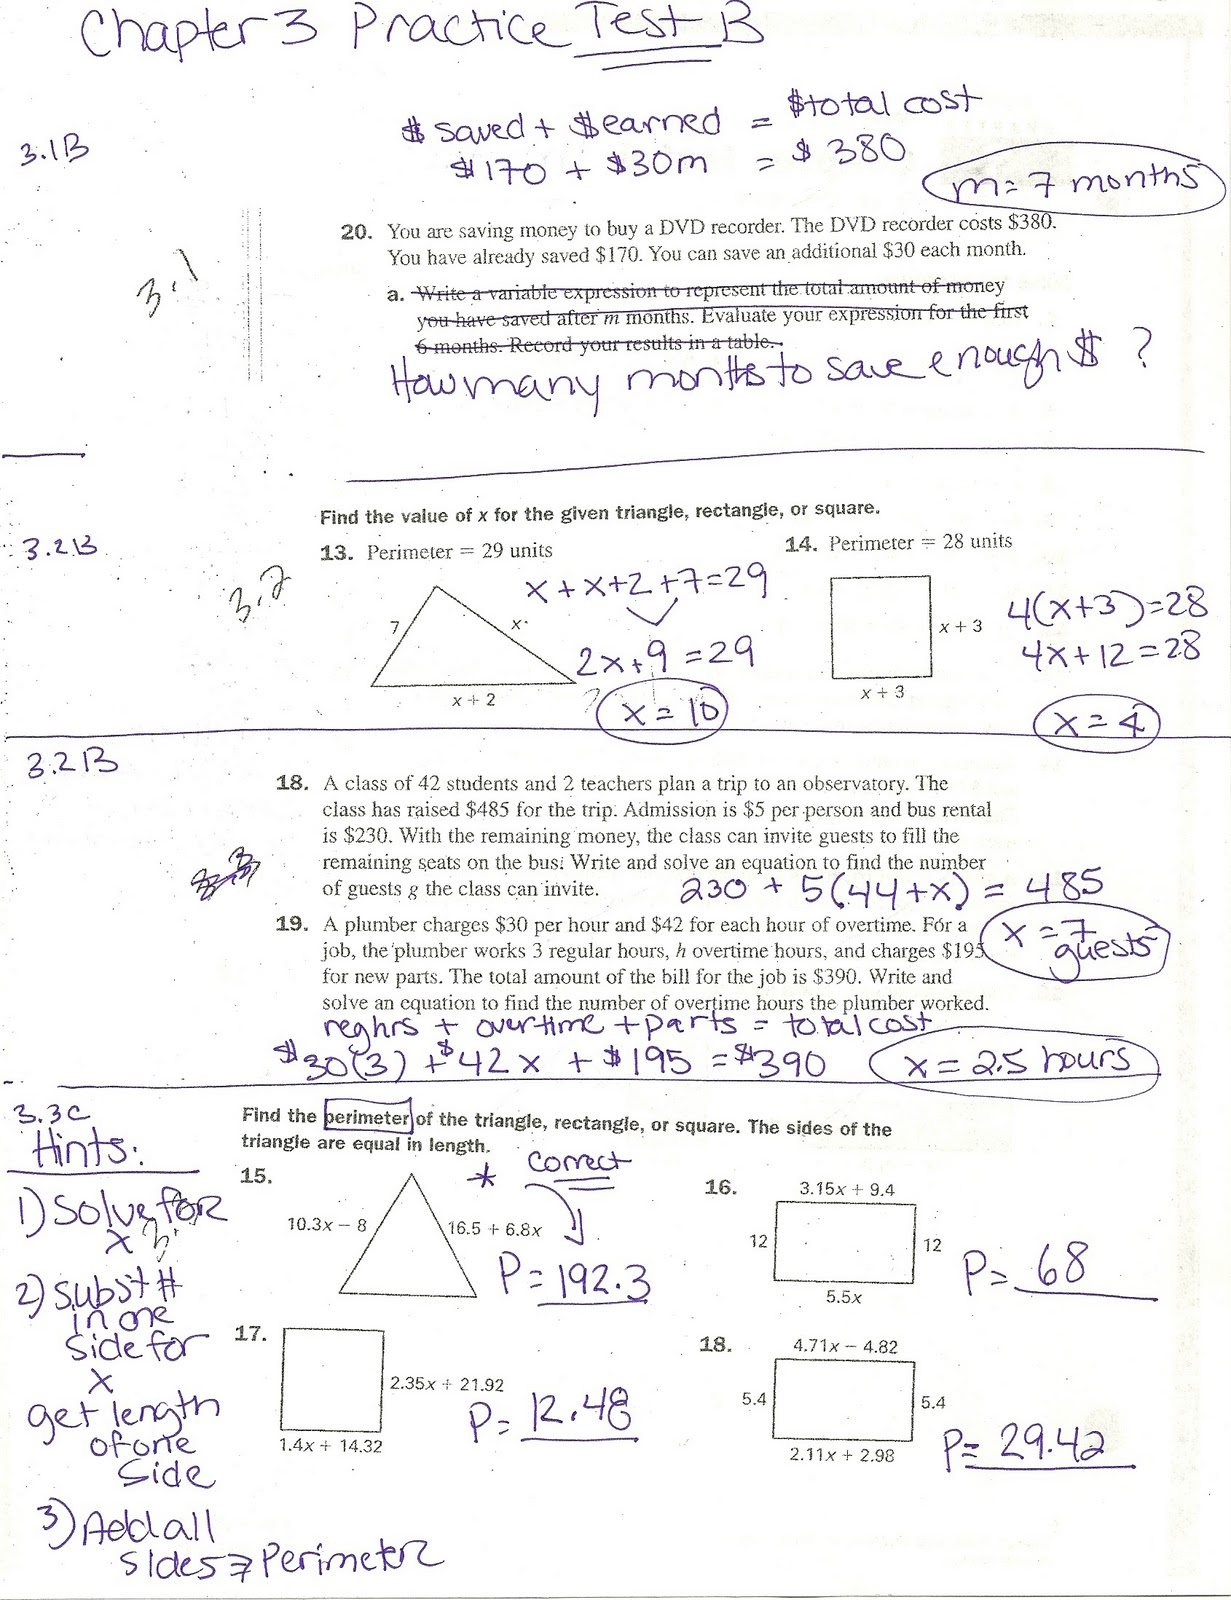 Chapter 3 Practice Test B
$ saved + $earned = $total cost
3.1B
$170 + $30m = $380
m=7 months
20. You are saving money to buy a DVD recorder. The DVD recorder costs $380.
You have already saved $170. You can save an additional $30 each month.
3.1
a. Write a variable expression to represent the total amount of money
you have saved after m months. Evaluate your expression for the first
6 months. Record your results in a table.
How many months to save enough $ ?
Find the value of x for the given triangle, rectangle, or square.
3.2B
13. Perimeter = 29 units
14. Perimeter = 28 units
3.2
x + x+2+7=29
7
x
x + 2
2x+9=29
x=10
x + 3
x + 3
4(x+3)=28
4x+12=28
x=4
3.2B
18. A class of 42 students and 2 teachers plan a trip to an observatory. The
class has raised $485 for the trip. Admission is $5 per person and bus rental
is $230. With the remaining money, the class can invite guests to fill the
remaining seats on the bus. Write and solve an equation to find the number
of guests g the class can invite.
230 + 5(44+x) = 485
x=7 guests
19. A plumber charges $30 per hour and $42 for each hour of overtime. For a
job, the plumber works 3 regular hours, h overtime hours, and charges $195
for new parts. The total amount of the bill for the job is $390. Write and
solve an equation to find the number of overtime hours the plumber worked.
reghrs + overtime + parts = total cost
$30(3) + $42x + $195 = $390
x=2.5 hours
3.3C
Hints:
1) Solve for
x
2) Subst #
in one
side for
x
get length
of one
side
3) Add all
sides = Perimeter
Find the perimeter of the triangle, rectangle, or square. The sides of the
triangle are equal in length.
15.
* Correct
10.3x − 8
16.5 + 6.8x
P=192.3
16.
3.15x + 9.4
12
12
5.5x
P=68
17.
2.35x + 21.92
1.4x + 14.32
P=12.48
18.
4.71x − 4.82
5.4
5.4
2.11x + 2.98
P=29.42